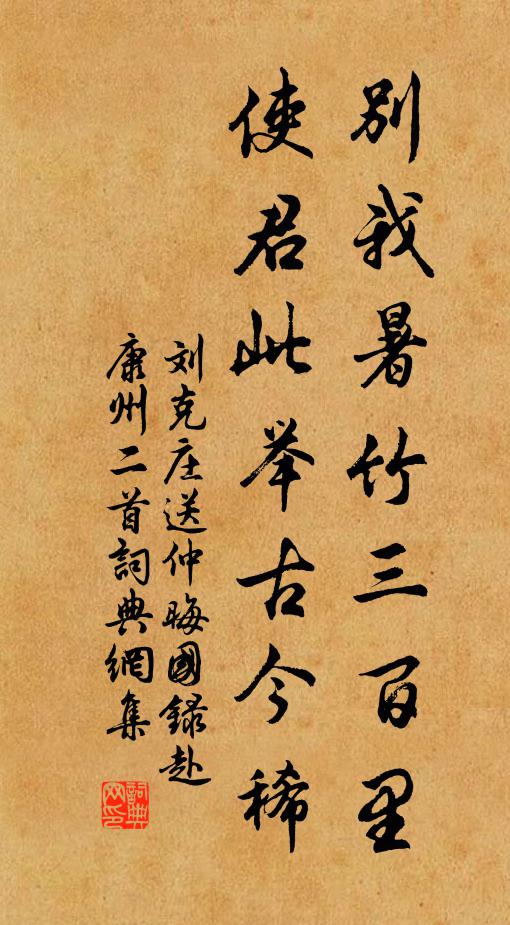 别我暑竹三百里
使君此举古今稀
刘克庄送仲晦國録赴
康州二首詞典網集
詞典
网印